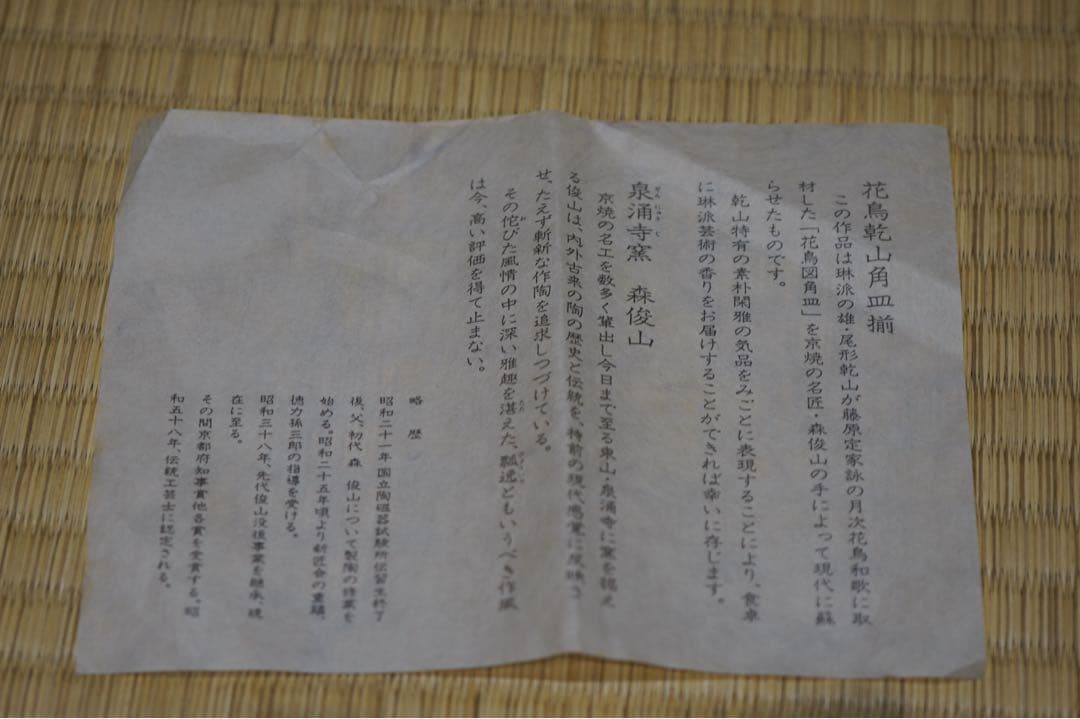 花鳥乾山角皿揃
この作品は琳派の雄・尾形乾山が藤原定家詠の月次花鳥和歌に取
材した「花鳥図角皿」を京焼の名匠・森俊山の手によって現代に蘇
らせたものです。
乾山特有の素朴閑雅の気品をみごとに表現することにより、食卓
に琳派芸術の香りをお届けすることができれば幸いに存じます。
泉涌寺窯 森俊山
京焼の名工を数多く輩出し今日まで至る東山・泉涌寺に窯を構え
る俊山は、内外古来の陶の歴史と伝統を、持前の現代感覚に反映さ
せ、たえず斬新な作陶を追求しつづけている。
その侘びた風情の中に深い雅趣を湛えた、瓢逸ともいうべき作風
は今、高い評価を得て止まない。
略 歴
昭和二十一年 国立陶磁器試験所伝習生終了
後、父、初代 森 俊山について製陶の修業を
始める。昭和二十五年頃より新匠会の重鎮、
徳力孫三郎の指導を受ける。
昭和三十八年、先代俊山没後事業を継承、現
在に至る。
その間京都府知事賞他各賞を受賞する。昭
和五十八年、伝統工芸士に認定される。